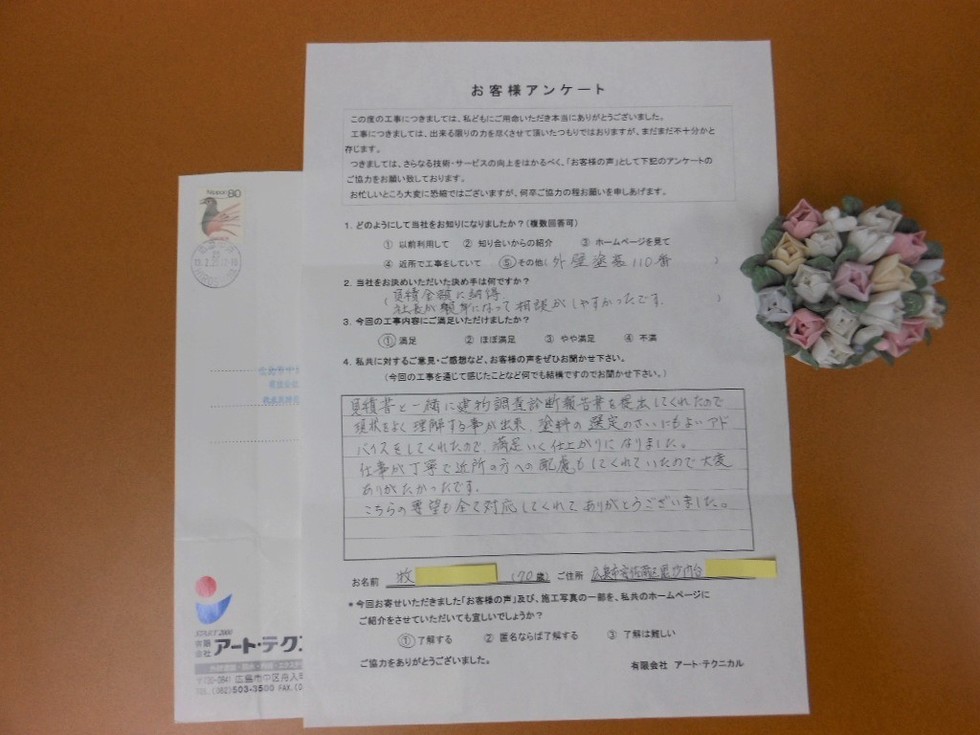 お客様アンケート
この度の工事につきましては、私どもにご用命いただき本当にありがとうございました。
工事につきましては、出来る限りの力を尽くさせて頂いたつもりではおりますが、まだまだ不十分かと
存じます。
つきましては、さらなる技術・サービスの向上をはかるべく、「お客様の声」として下記のアンケートの
ご協力をお願い致しております。
お忙しいところ大変に恐縮ではございますが、何卒ご協力の程お願いを申しあげます。
1. どのようにして当社をお知りになりましたか？(複数回答可)
① 以前利用して ② 知り合いからの紹介 ③ ホームページを見て
④ 近所で工事をしていて ⑤ その他( 外壁塗装110番 )
2. 当社をお決めいただいた決め手は何ですか？
( 見積金額に納得
社長が親身になって相談がしやすかったです. )
3. 今回の工事内容にご満足いただけましたか？
① 満足 ② ほぼ満足 ③ やや満足 ④ 不満
4. 私共に対するご意見・ご感想など、お客様の声をぜひお聞かせ下さい。
(今回の工事を通じて感じたことなど何でも結構ですのでお聞かせ下さい。)
見積書と一緒に建物調査診断報告書を提出してくれたので
現状をよく理解する事が出来、塗料の選定のさいにもよいアド
バイスをしてくれたので、満足いく仕上がりになりました。
仕事が丁寧で近所の方への配慮もしてくれていたので大変
ありがたかったです.
こちらの要望も全て対応してくれてありがとうございました。
お名前 牧 (70歳) ご住所 広島市安佐南区
＊今回お寄せいただきました「お客様の声」及び、施工写真の一部を、私共のホームページに
ご紹介をさせていただいても宜しいでしょうか？
① 了解する ② 匿名ならば了解する ③ 了解は難しい
ご協力をありがとうございました。
有限会社 アート・テクニカル
NIPPON 80
START 2000
有限会社 アート・テクニ
広島市中区舟入
TEL.(082)503-3500 FAX.(0